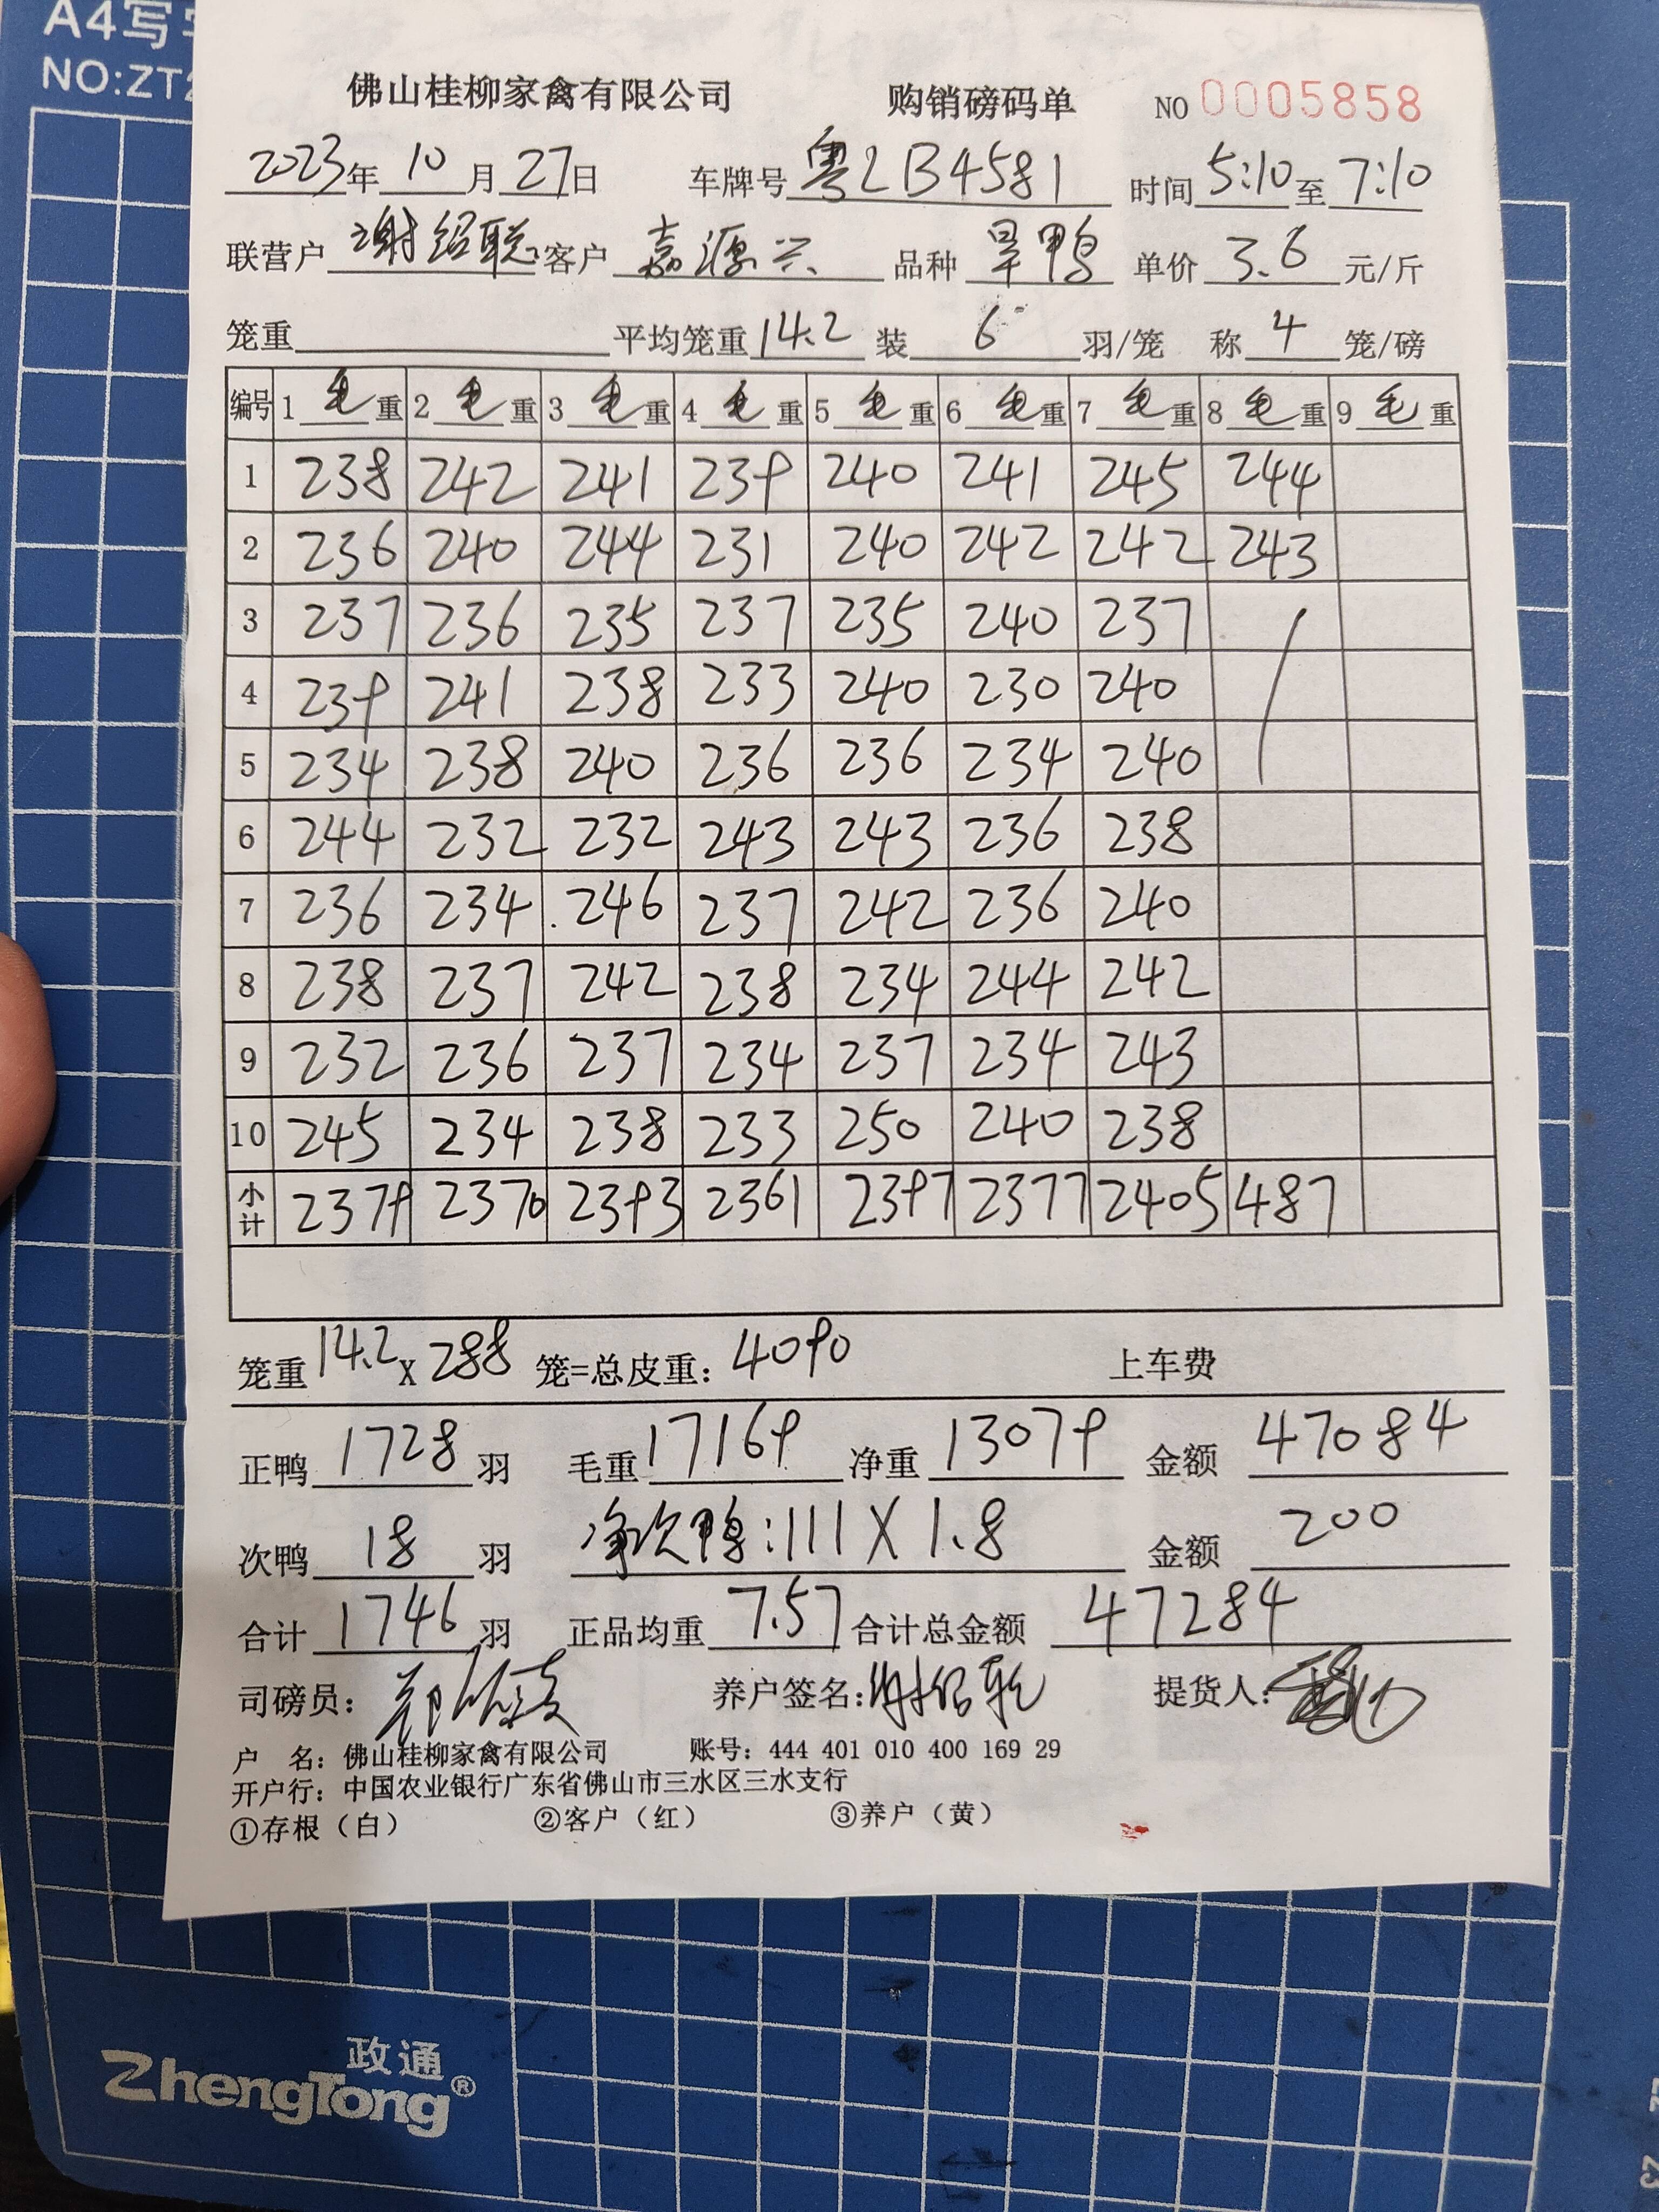 A4写字
NO:ZT2
佛山桂柳家禽有限公司 购销磅码单 NO 0005858
2023年 10月 27日 车牌号 粤LB4581 时间 5:10 至 7:10
联营户 谢绍聪 客户 嘉源兴 品种 旱鸭 单价 3.6 元/斤
笼重 平均笼重 14.2 装 6 羽/笼 称 4 笼/磅
编号 1 毛重 2 毛重 3 毛重 4 毛重 5 毛重 6 毛重 7 毛重 8 毛重 9 毛重
1 238 242 241 239 240 241 245 244
2 236 240 244 231 240 242 242 243
3 237 236 235 237 235 240 237
4 239 241 238 233 240 230 240
5 234 238 240 236 236 234 240
6 244 232 232 243 243 236 238
7 236 234 246 237 242 236 240
8 238 237 242 238 234 244 242
9 232 236 237 234 237 234 243
10 245 234 238 233 250 240 238
小计 2379 2370 2393 2361 2397 2377 2405 487
笼重 14.2 X 288 笼=总皮重: 4090 上车费
正鸭 1728 羽 毛重 17169 净重 13079 金额 47084
次鸭 18 羽 净次鸭:111X1.8 金额 200
合计 1746 羽 正品均重 7.57 合计总金额 47284
司磅员: 养户签名: 提货人:
户 名: 佛山桂柳家禽有限公司 账号: 444 401 010 400 169 29
开户行: 中国农业银行广东省佛山市三水区三水支行
①存根（白） ②客户（红） ③养户（黄）
政通
ZhengTong®
23